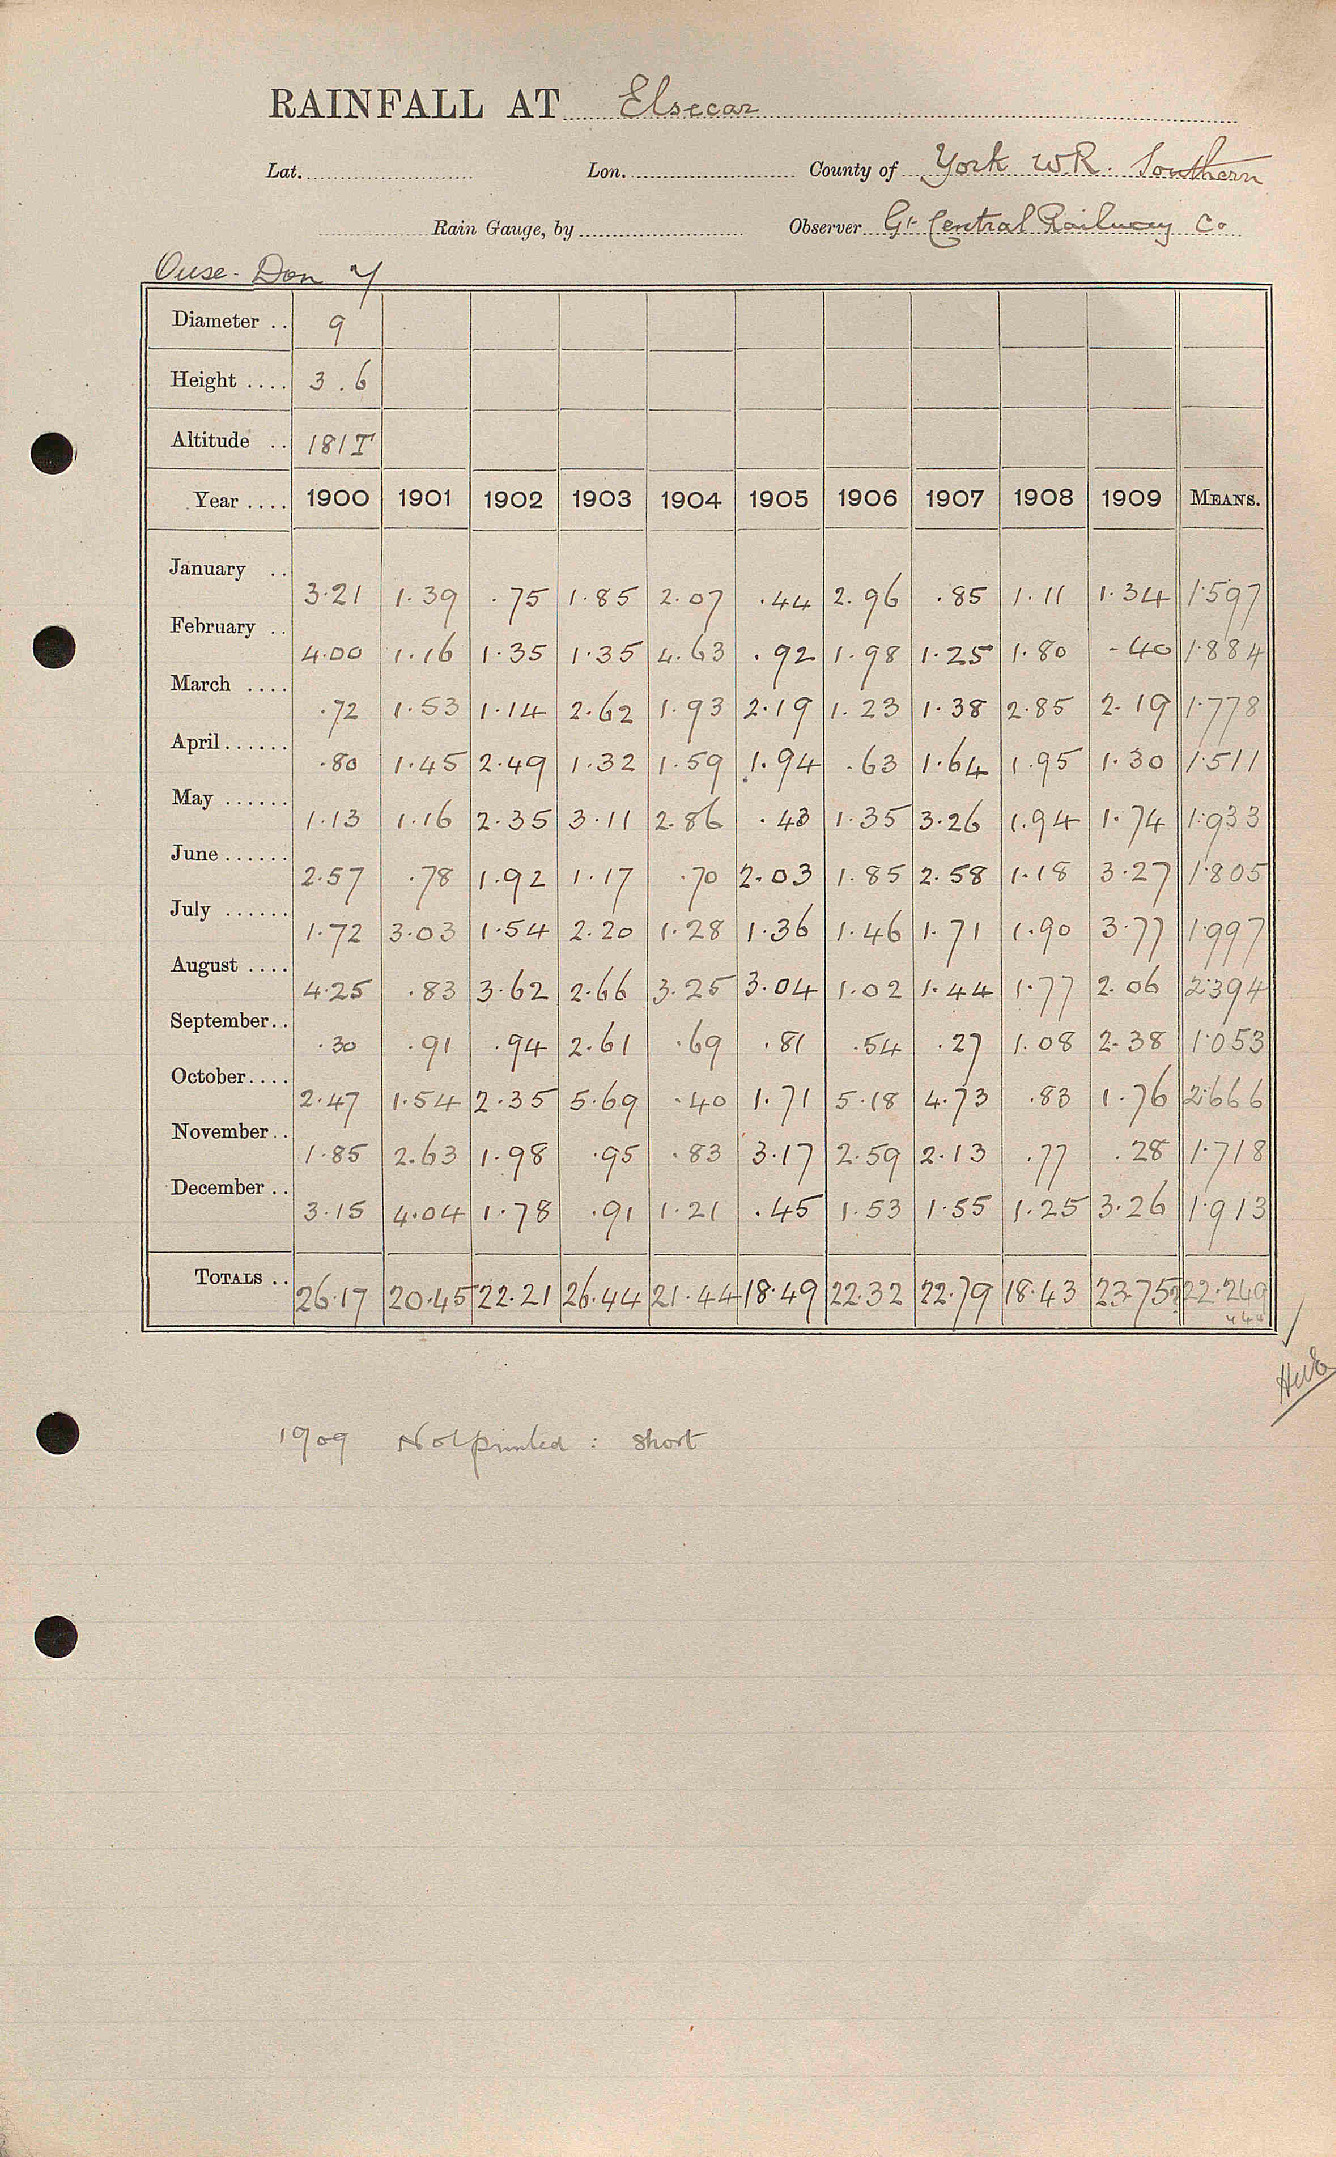 RAINFALL AT Elsecar
Lat. Lon. County of York W.R. Southern
Rain Gauge, by Observer Gt Central Railway Co
Ouse - Don
Diameter .. 9
Height .... 3.6
Altitude .. 181T
Year .... 1900 1901 1902 1903 1904 1905 1906 1907 1908 1909 MEANS.
January .. 3.21 1.39 .75 1.85 2.07 .44 2.96 .85 1.11 1.34 1.597
February .. 4.00 1.16 1.35 1.35 4.63 .92 1.98 1.25 1.80 .40 1.884
March .... .72 1.53 1.14 2.62 1.93 2.19 1.23 1.38 2.85 2.19 1.778
April ...... .80 1.45 2.49 1.32 1.59 1.94 .63 1.64 1.95 1.30 1.511
May ...... 1.13 1.16 2.35 3.11 2.86 .43 1.35 3.26 1.94 1.74 1.933
June ...... 2.57 .78 1.92 1.17 .70 2.03 1.85 2.58 1.18 3.27 1.805
July ...... 1.72 3.03 1.54 2.20 1.28 1.36 1.46 1.71 1.90 3.77 1.997
August .... 4.25 .83 3.62 2.66 3.25 3.04 1.02 1.44 1.77 2.06 2.394
September .. .30 .91 .94 2.61 .69 .81 .54 .27 1.08 2.38 1.053
October .... 2.47 1.54 2.35 5.69 .40 1.71 5.18 4.73 .83 1.76 2.666
November .. 1.85 2.63 1.98 .95 .83 3.17 2.59 2.13 .77 .28 1.718
December .. 3.15 4.04 1.78 .91 1.21 .45 1.53 1.55 1.25 3.26 1.913
TOTALS .. 26.17 20.45 22.21 26.44 21.44 18.49 22.32 22.79 18.43 23.75? 22.249
1909 Not printed : short